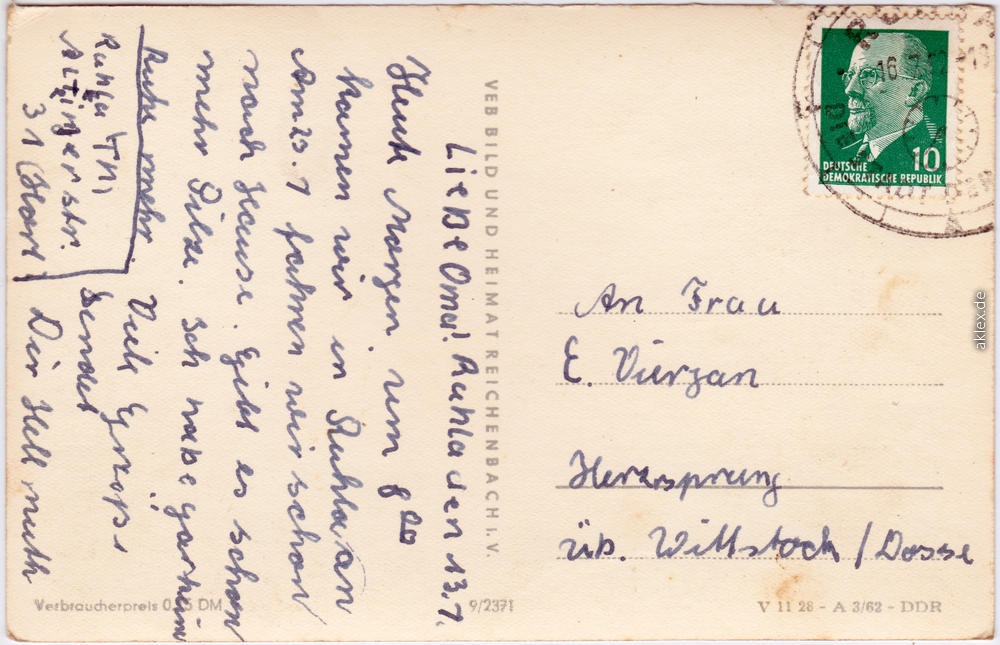 Ließe Oma! Ruhla den 13.7.
Heute Morgen um 8 00
kamen wir in Ruhla an
Am 23.7 fahren wir schon
nach Hause. Gibt es schon
mehr Pilze. Ich habe gar kein
Ruhe mehr. Viele Grüße
sendet
Dir Hellmuth
Ruhla (TH)
Altinger str.
31 (Hort)
VEB BILD UND HEIMAT REICHENBACH I. V.
An Frau
E. Vierzan
Herzsprung
üb. Wittstock / Dosse
DEUTSCHE
DEMOKRATISCHE REPUBLIK
10
16
Verbraucherpreis 0,15 DM
9/2371
V 11 28 - A 3/62 - DDR
aklex.de